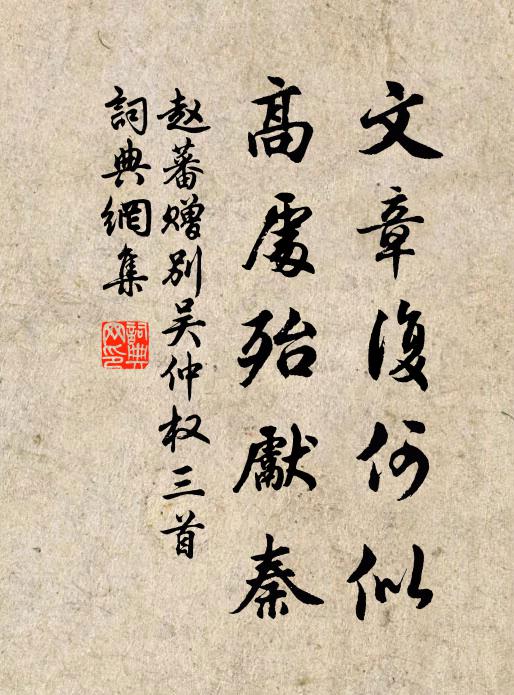 文章復何似
高處殆獻秦
赵蕃赠别吴仲权三首
詞典網集
詞典網印